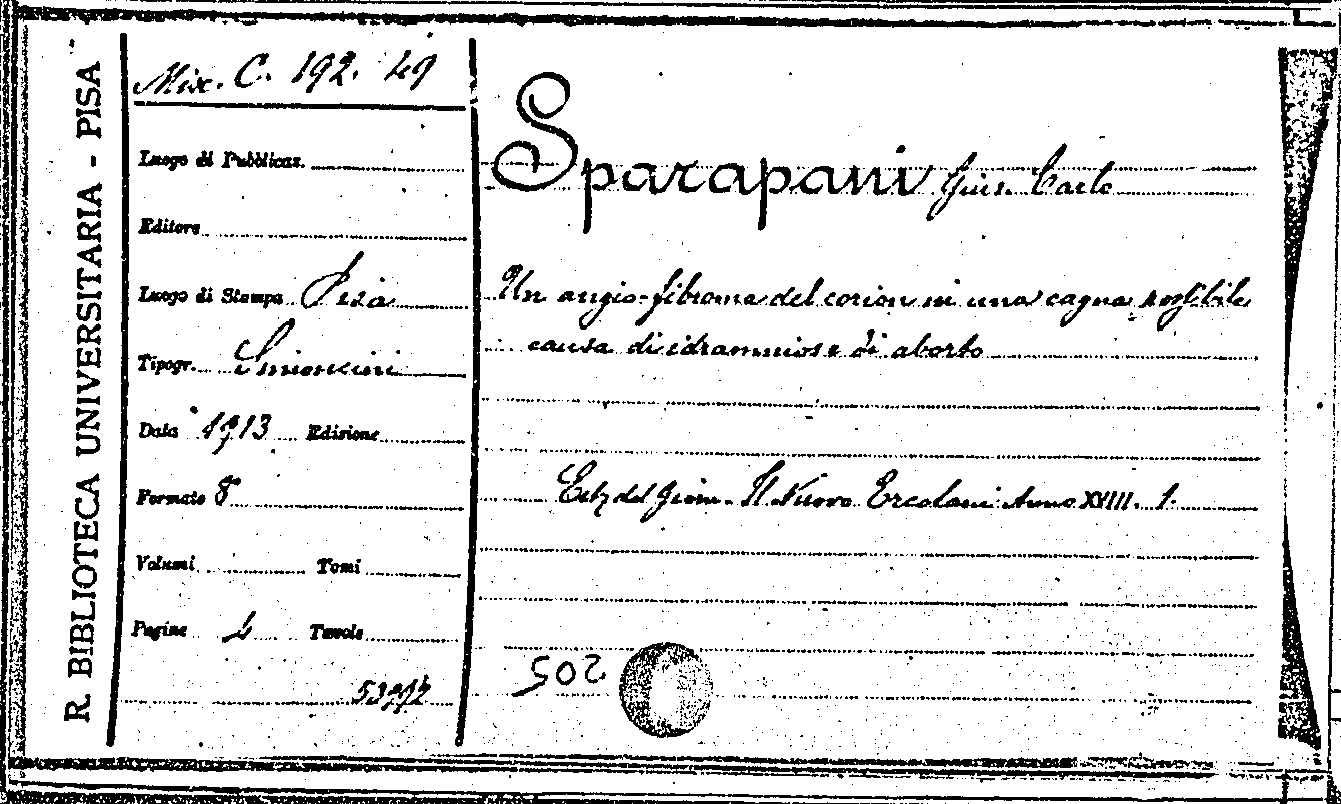 R. BIBLIOTECA UNIVERSITARIA - PISA
Misc. C. 192. 49
Luogo di Pubblicaz.
Editore
Luogo di Stampa Pisa
Tipogr. Simoncini
Data 1913 Edizione
Formato 8°
Volumi Tomi
Pagine 4 Tavole
Sparapani Gius. Carlo
Un angio-fibroma del corion in una cagna possibile
causa di idramnios e di aborto
Estr. del Giorn. Il Nuovo Ercolani Anno XVIII. 1.
502